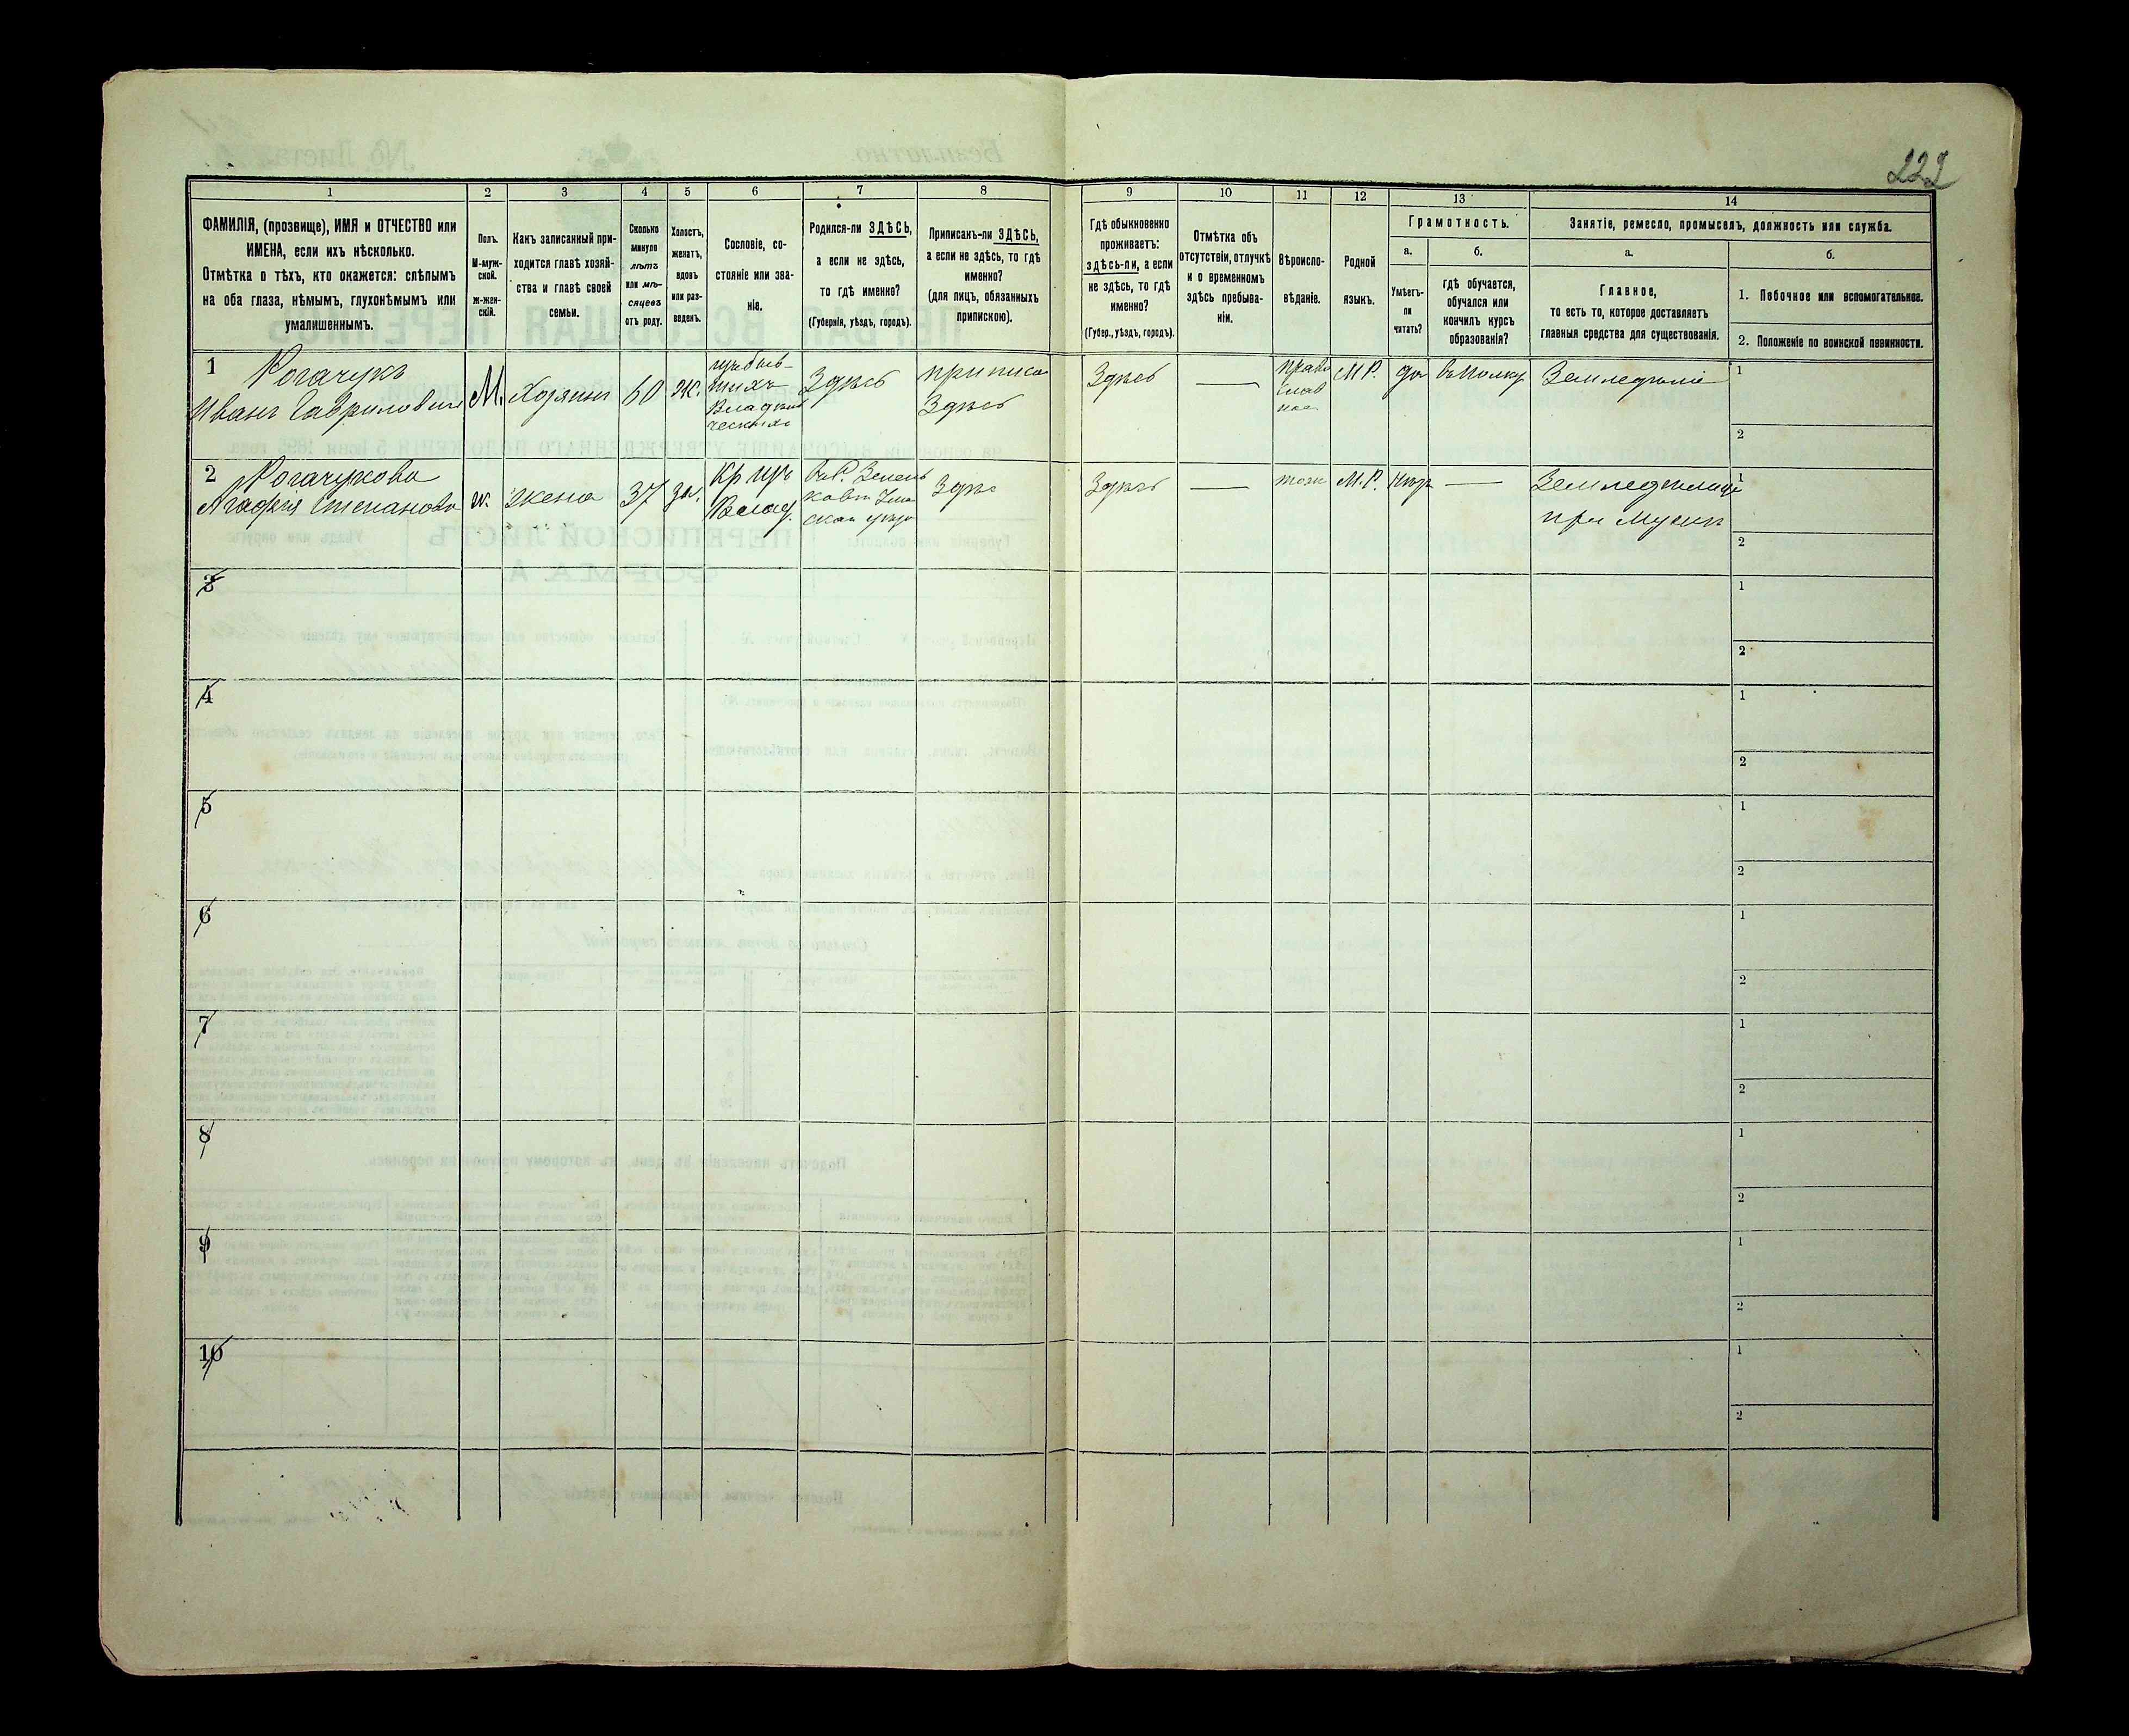 222
1 2 3 4 5 6 7 8 9 10 11 12 13 14
ФАМИЛІЯ, (прозвище), ИМЯ и ОТЧЕСТВО или
ИМЕНА, если ихъ нѣсколько.
Отмѣтка о тѣхъ, кто окажется: слѣпымъ
на оба глаза, нѣмымъ, глухонѣмымъ или
умалишеннымъ.
Полъ.
М-муж-
ской.
ж-жен-
скій.
Какъ записанный при-
ходится главѣ хозяй-
ства и главѣ своей
семьи.
Сколько
минуло
лѣтъ
или мѣ-
сяцевъ
отъ роду.
Холостъ,
женатъ,
вдовъ
или раз-
веденъ.
Сословіе, со-
стояніе или зва-
ніе.
Родился-ли ЗДѢСЬ,
а если не здѣсь,
то гдѣ именно?
(Губернія, уѣздъ, городъ).
Приписанъ-ли ЗДѢСЬ,
а если не здѣсь, то гдѣ
именно?
(для лицъ, обязанныхъ
припискою).
Гдѣ обыкновенно
проживаетъ:
здѣсь-ли, а если
не здѣсь, то гдѣ
именно?
(Губер., уѣздъ, городъ).
Отмѣтка объ
отсутствіи, отлучкѣ
и о временномъ
здѣсь пребыва-
ніи.
Вѣроиспо-
вѣданіе.
Родной
языкъ.
Грамотность.
а.
Умѣетъ-
ли
читать?
б.
гдѣ обучается,
обучался или
кончилъ курсъ
образованія?
Занятіе, ремесло, промыселъ, должность или служба.
а.
Главное,
то есть то, которое доставляетъ
главныя средства для существованія.
б.
1. Побочное или вспомогательное.
2. Положеніе по воинской повинности.
1 Рогачукъ
Иванъ Гавриловичъ
М.
Хозяинъ
60
ж.
Здѣсь
приписа
Здѣсь
Здѣсь
—
право
слав
ное
М Р.
да
въ полку
Земледѣліе
1
2
2 Рогачукова
Агафія Степановна
ж.
жена
37
за.
Кр изъ
Влад.
Здѣс
Здѣсь
—
тож
М. Р.
нѣт
—
Земледѣлица
при Мужѣ
1
2
3
1
2
4
1
2
5
1
2
6
1
2
7
1
2
8
1
2
9
1
2
10
1
2